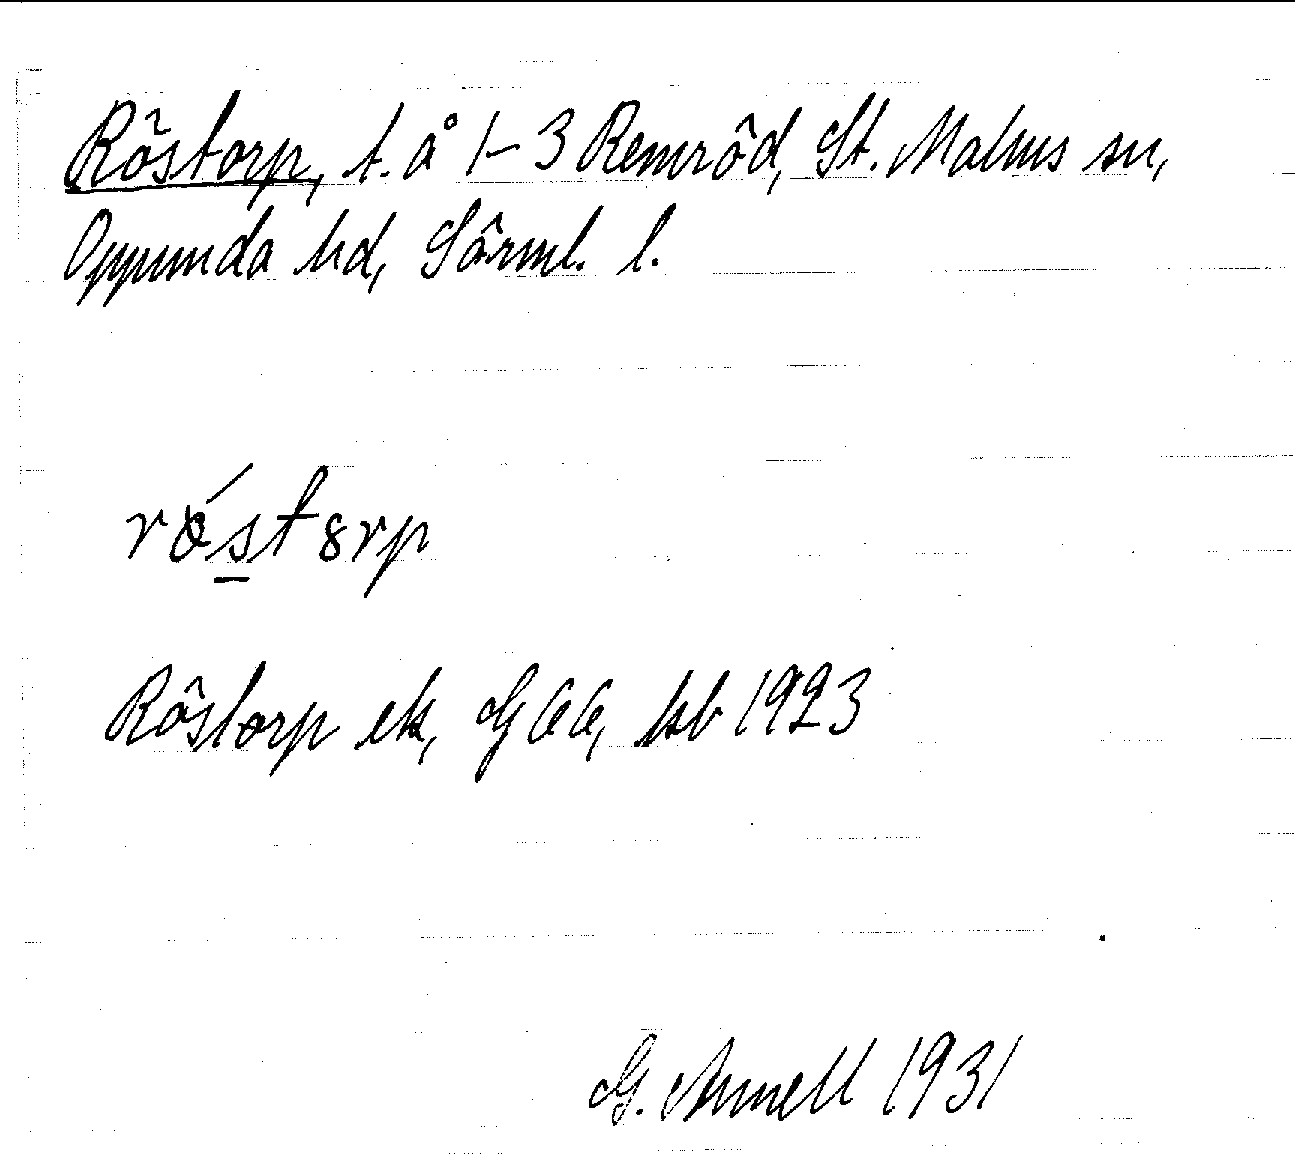 Röstorp, t. å 1–3 Remröd, St. Malms sn,
Oppunda hd, Sörml. l.
röstorp
Röstorp ek, GEK, kb 1923
G. Annell 1931